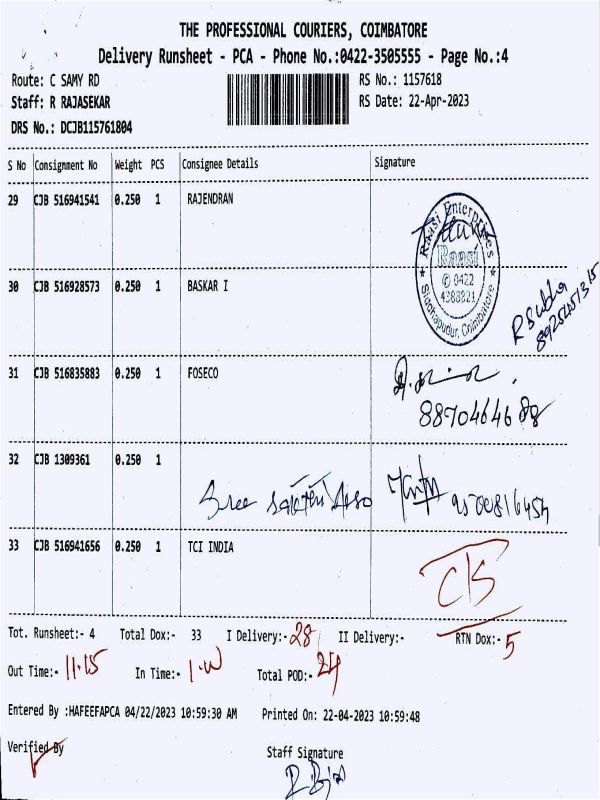 THE PROFESSIONAL COURIERS, COIMBATORE
Delivery Runsheet - PCA - Phone No.:0422-3505555 - Page No.:4
Route: C SAMY RD
RS No.: 1157618
Staff: R RAJASEKAR
RS Date: 22-Apr-2023
DRS No.: DCJB115761804
S No Consignment No Weight PCS Consignee Details Signature
29 CJB 516941541 0.250 1 RAJENDRAN
Raasi Enterprises
Raasi
✆ 0422
4388821
Siddhapudur, Coimbatore
30 CJB 516928573 0.250 1 BASKAR I
R Subha
8925451315
31 CJB 516835883 0.250 1 FOSECO
32 CJB 1309361 0.250 1
Sree
33 CJB 516941656 0.250 1 TCI INDIA
C/S
Tot. Runsheet:- 4 Total Dox:- 33 I Delivery:- 28 II Delivery:- RTN Dox:- 5
Out Time:- 11.15 In Time:- Total POD:- 24
Entered By :HAFEEFAPCA 04/22/2023 10:59:30 AM Printed On: 22-04-2023 10:59:48
Verified By Staff Signature